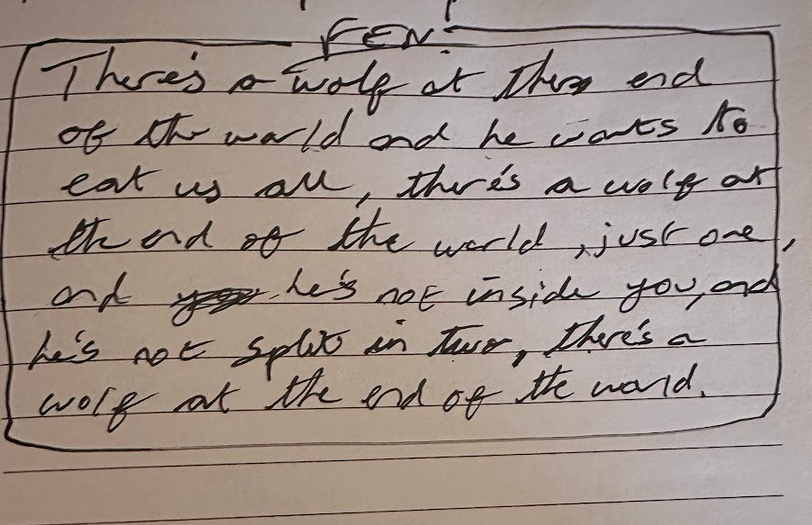 FEN.
There's a wolf at the end
of the world and he wants to
eat us all, there's a wolf at
the end of the world, just one,
and he's not inside you, and
he's not split in two, there's a
wolf at the end of the world.